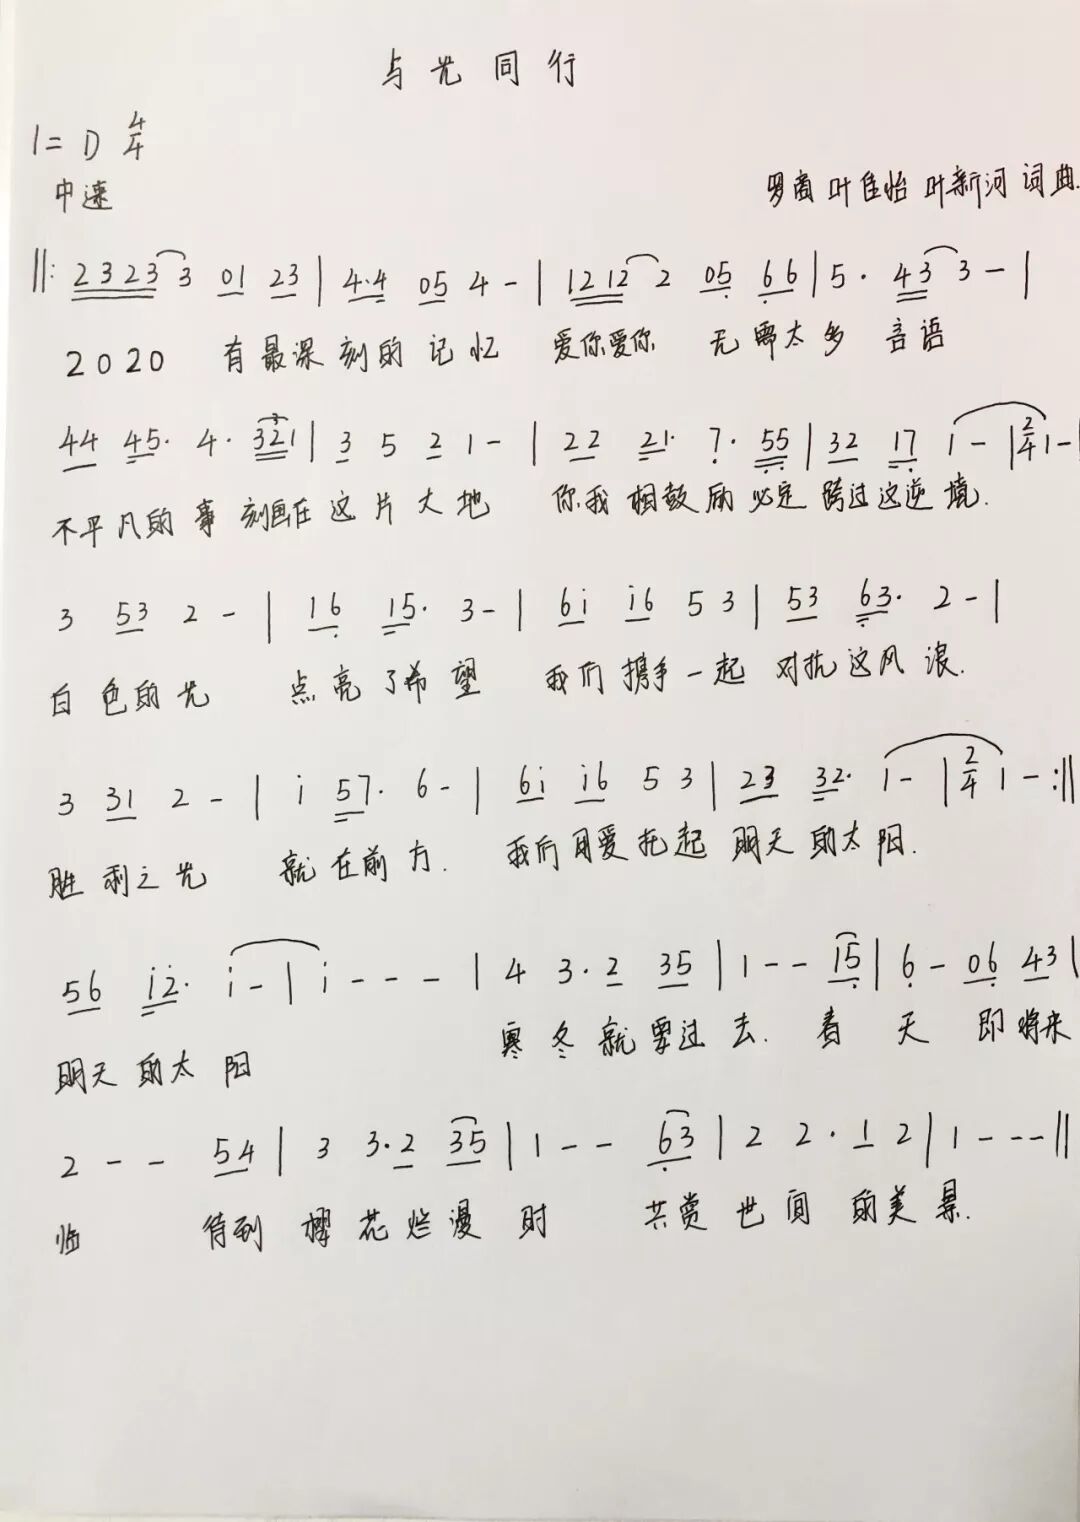 与光同行
1= D 4/4
中速
罗茜 叶佳怡 叶新河 词曲.
‖: 2323 3 01 23 | 4·4 05 4 - | 1212 2 05 66 | 5· 43 3 - |
2020 有最深刻的记忆 爱你爱你 无需太多言语
44 45· 4· 321 | 3 5 2 1 - | 22 21· 7· 55 | 32 17 1 - | 2/4 1 - |
不平凡的事刻画在这片大地 你我相鼓励必定跨过这逆境.
3 53 2 - | 16 15· 3 - | 6i i6 5 3 | 53 63· 2 - |
白色的光 点亮了希望 我们携手一起对抗这风浪.
3 31 2 - | i 57· 6 - | 6i i6 5 3 | 23 32· 1 - | 2/4 1 - :‖
胜利之光 就在前方. 我们用爱托起明天的太阳.
56 i2· i - | i - - - | 4 3·2 35 | 1 - - 15 | 6 - 06 43 |
明天的太阳 寒冬就要过去. 春天即将来
2 - - 54 | 3 3·2 35 | 1 - - 63 | 2 2·1 2 | 1 - - - ‖
临 待到樱花烂漫时 共赏世间的美景.